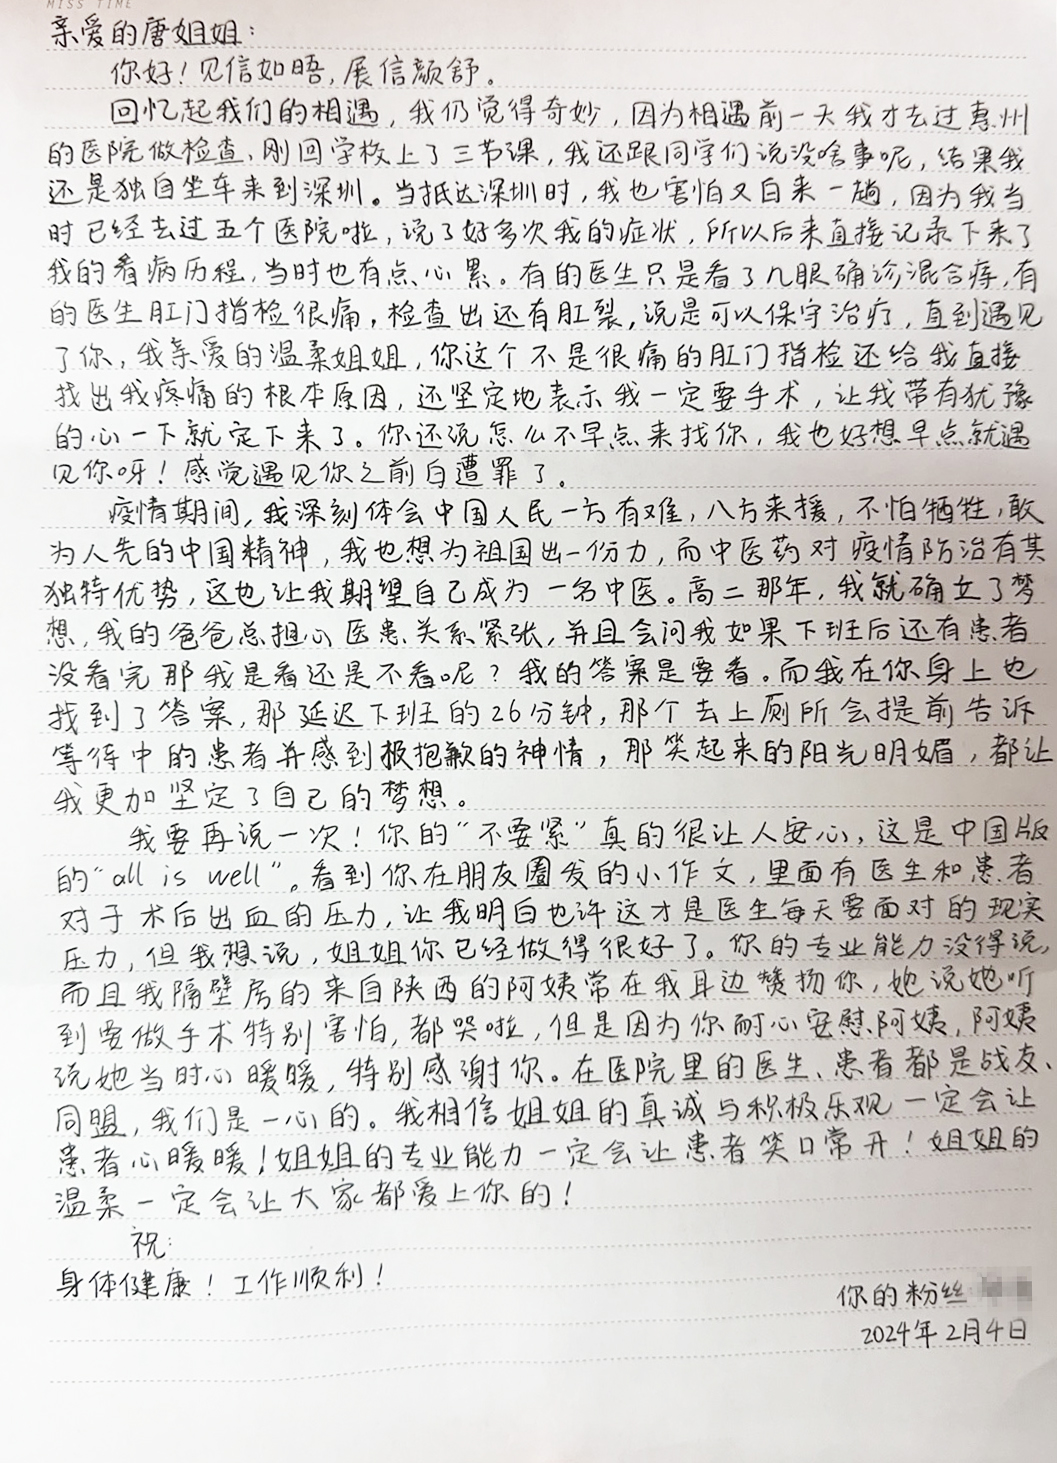 MISS TIME
亲爱的唐姐姐：
你好！见信如晤，展信颜舒。
回忆起我们的相遇，我仍觉得奇妙，因为相遇前一天我才去过惠州
的医院做检查、刚回学校上了三节课，我还跟同学们说没啥事呢，结果我
还是独自坐车来到深圳。当抵达深圳时，我也害怕又白来一趟，因为我当
时已经去过五个医院啦，说了好多次我的症状，所以后来直接记录下来了
我的看病历程，当时也有点心累。有的医生只是看了几眼确诊混合痔，有
的医生肛门指检很痛，检查出还有肛裂，说是可以保守治疗，直到遇见
了你，我亲爱的温柔姐姐，你这个不是很痛的肛门指检还给我直接
找出我疼痛的根本原因，还坚定地表示我一定要手术，让我带有犹豫
的心一下就定下来了。你还说怎么不早点来找你，我也好想早点就遇
见你呀！感觉遇见你之前白遭罪了。
疫情期间，我深刻体会中国人民一方有难，八方来援，不怕牺牲，敢
为人先的中国精神，我也想为祖国出一份力，而中医药对疫情防治有其
独特优势，这也让我期望自己成为一名中医。高二那年，我就确立了梦
想，我的爸爸总担心医患关系紧张，并且会问我如果下班后还有患者
没看完那我是看还是不看呢？我的答案是要看。而我在你身上也
找到了答案，那延迟下班的26分钟，那个去上厕所会提前告诉
等待中的患者并感到报抱歉的神情，那笑起来的阳光明媚，都让
我更加坚定了自己的梦想。
我要再说一次！你的“不要紧”真的很让人安心，这是中国版
的“all is well”。看到你在朋友圈发的小作文，里面有医生和患者
对于术后出血的压力，让我明白也许这才是医生每天要面对的现实
压力，但我想说，姐姐你已经做得很好了。你的专业能力没得说，
而且我隔壁房的来自陕西的阿姨常在我耳边赞扬你，她说她听
到要做手术特别害怕，都哭啦，但是因为你耐心安慰阿姨，阿姨
说她当时心暖暖，特别感谢你。在医院里的医生、患者都是战友、
同盟，我们是一心的。我相信姐姐的真诚与积极乐观一定会让
患者心暖暖！姐姐的专业能力一定会让患者笑口常开！姐姐的
温柔一定会让大家都爱上你的！
祝：
身体健康！工作顺利！
你的粉丝
2024年2月4日